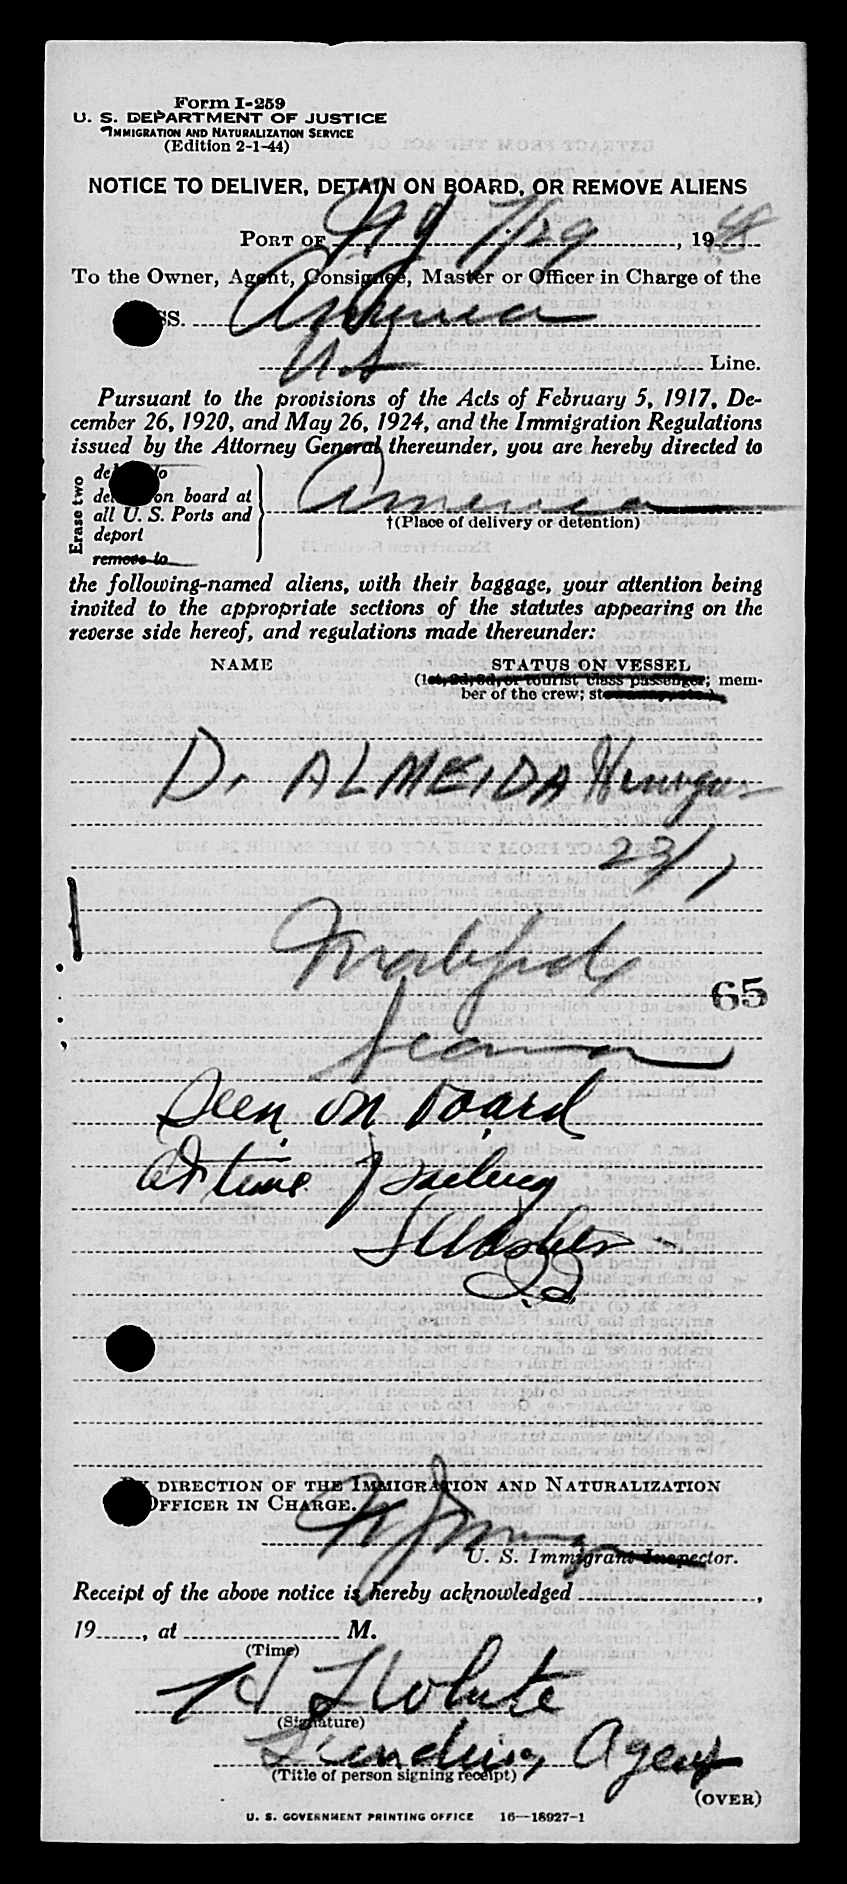 Form I-259
U. S. DEPARTMENT OF JUSTICE
IMMIGRATION AND NATURALIZATION SERVICE
(Edition 2-1-44)
NOTICE TO DELIVER, DETAIN ON BOARD, OR REMOVE ALIENS
PORT OF NY 7/29, 1948
To the Owner, Agent, Consignee, Master or Officer in Charge of the
SS. America
US Line.
Pursuant to the provisions of the Acts of February 5, 1917, De-
cember 26, 1920, and May 26, 1924, and the Immigration Regulations
issued by the Attorney General thereunder, you are hereby directed to
Erase two
to
on board at
all U. S. Ports and America
†(Place of delivery or detention)
deport
remove to
the following-named aliens, with their baggage, your attention being
invited to the appropriate sections of the statutes appearing on the
reverse side hereof, and regulations made thereunder:
NAME STATUS ON VESSEL
(1st, 2d, 3d, or tourist class passenger; mem-
ber of the crew;
D. ALMEIDA
23/1
Malafide
65
Seaman
Seen on board
at time of sailing
BY DIRECTION OF THE IMMIGRATION AND NATURALIZATION
OFFICER IN CHARGE.
U. S. Immigrant Inspector.
Receipt of the above notice is hereby acknowledged ,
19 , at M.
(Time)
White
(Signature)
Landing Agent
(Title of person signing receipt)
(OVER)
U. S. GOVERNMENT PRINTING OFFICE 16—18927-1